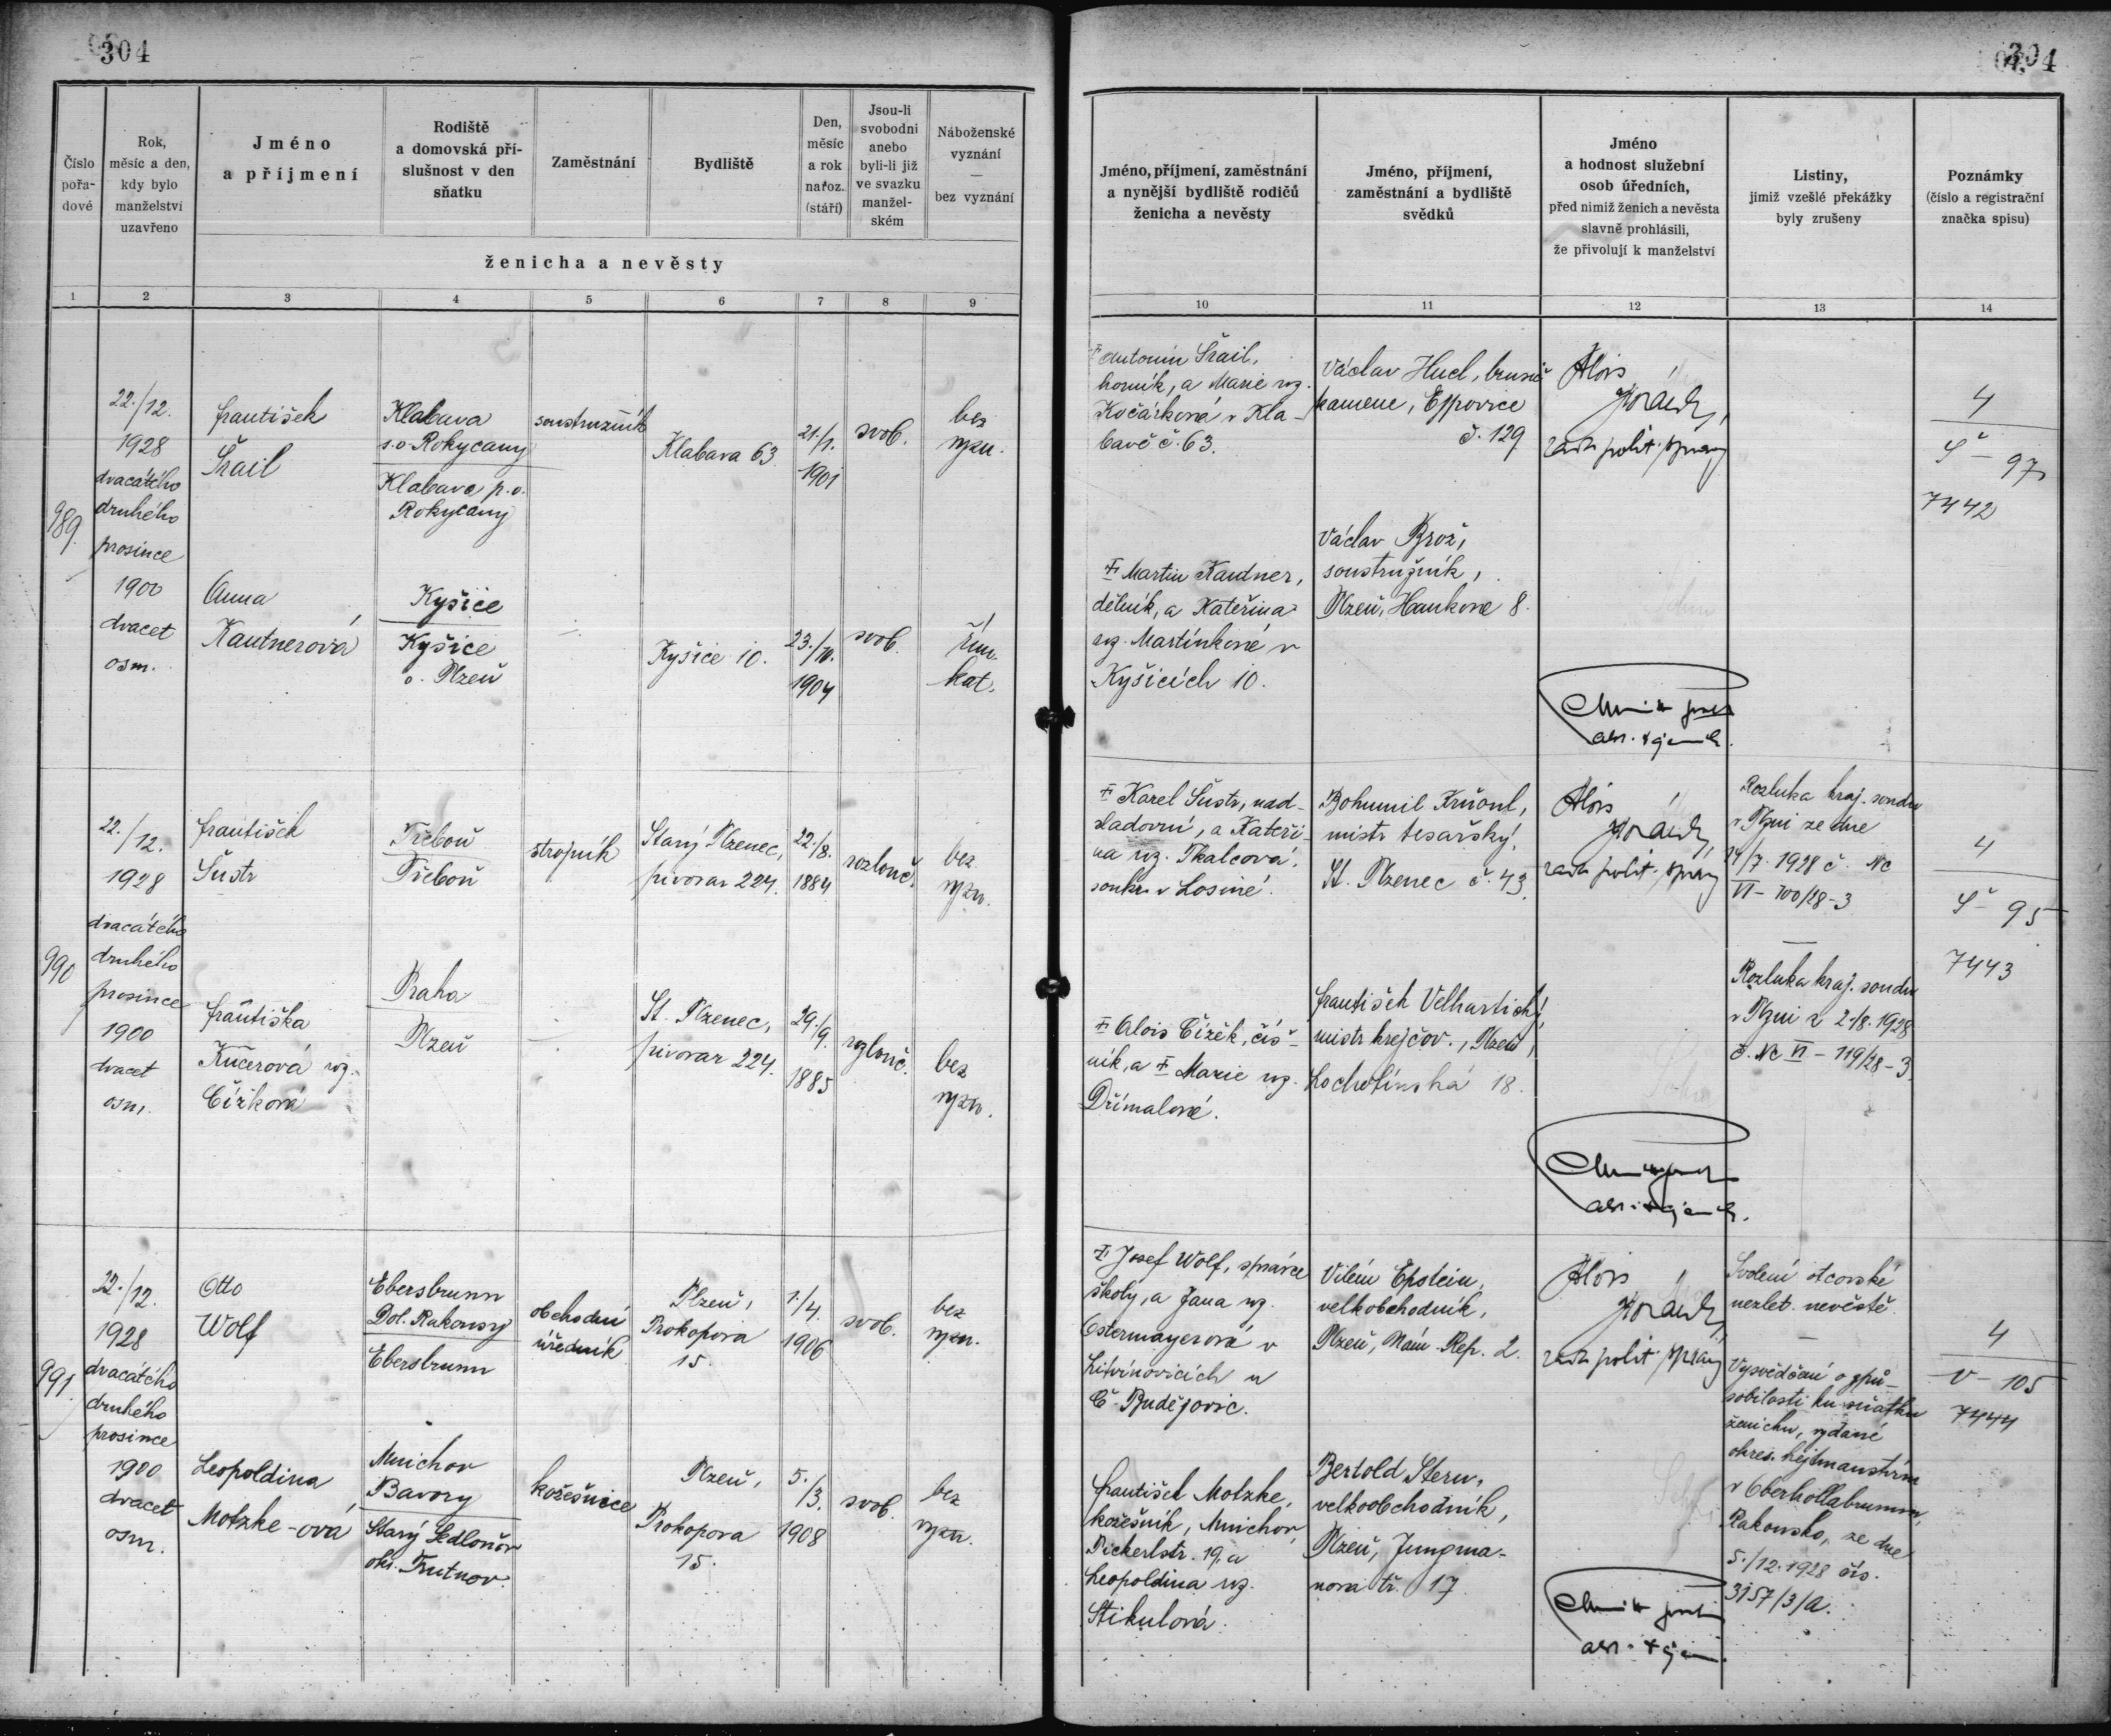 304
304
Číslo
pořa-
dové
Rok,
měsíc a den,
kdy bylo
manželství
uzavřeno
Jméno
a příjmení
Rodiště
a domovská pří-
slušnost v den
sňatku
Zaměstnání
Bydliště
Den,
měsíc
a rok
naroz.
(stáří)
Jsou-li
svobodni
anebo
byli-li již
ve svazku
manžel-
ském
Náboženské
vyznání
—
bez vyznání
ženicha a nevěsty
Jméno, příjmení, zaměstnání
a nynější bydliště rodičů
ženicha a nevěsty
Jméno, příjmení,
zaměstnání a bydliště
svědků
Jméno
a hodnost služební
osob úředních,
před nimiž ženich a nevěsta
slavně prohlásili,
že přivolují k manželství
Listiny,
jimiž vzešlé překážky
byly zrušeny
Poznámky
(číslo a registrační
značka spisu)
1 2 3 4 5 6 7 8 9 10 11 12 13 14
989.
22./12.
1928
dvacátého
druhého
prosince
1900
dvacet
osm.
František
Šrail
Klabava
s.o. Rokycany
Klabava p.o.
Rokycany
soustružník
Klabava 63
21./1.
1901
svob.
bez
vyzn.
Anna
Kautnerová
Kyšice
Kyšice
o. Plzeň
—
Kyšice 10.
23./
1904
svob.
řím.
kat.
Antonín Šrail,
horník, a Marie roz.
Kočárková v Kla-
bavě č. 63.
Martin Kautner,
dělník, a Kateřina
roz. Martínkové v
Kyšicích 10.
Václav Hucl, brusič
kamene, Ejpovice
č. 129
Václav Brož,
soustružník,
Plzeň, Hankova 8.
Alois
rada polit. správy
4
Š – 97
7442
990
22./12.
1928
dvacátého
druhého
prosince
1900
dvacet
osm.
František
Šustr
Třeboň
Třeboň
strojník
Starý Plzenec,
pivovar 224.
22./8.
1884
rozlouč.
bez
vyzn.
Františka
Kučerová roz.
Čížková
Praha
Plzeň
—
St. Plzenec,
pivovar 224.
29./9.
1885
rozlouč.
bez
vyzn.
Karel Šustr, nad-
sladovní, a Kateři-
na roz. Tkalcová,
soukr. v Losiné.
Alois Čížek, číš-
ník, a Marie roz.
Dřímalové.
Bohumil
mistr tesařský,
St. Plzenec č. 43.
František Velhartický,
mistr krejčov., Plzeň,
Lochotínská 18.
Alois
rada polit. správy
Rozluka kraj. soudu
v Plzni ze dne
24/7. 1928 č. Nc
VI – 100/28-3
—
Rozluka kraj. soudu
v Plzni z 2./8. 1928
č. Nc VI – 119/28-3.
4
Š – 95
7443
991.
22./12.
1928
dvacátého
druhého
prosince
1900
dvacet
osm.
Otto
Wolf
Ebersbrunn
Dol. Rakousy
Ebersbrunn
obchodní
úředník
Plzeň,
Prokopova
15.
1./4.
1906
svob.
bez
vyzn.
Leopoldina
Motzke-ová
Mnichov
Bavory
Starý Sedloňov
okr. Trutnov.
kožešnice
Plzeň,
Prokopova
15.
5./3.
1908
svob.
bez
vyzn.
Josef Wolf, správce
školy, a Jana roz.
Ostermayerová v
Litvínovicích u
Č. Budějovic.
František Motzke,
kožešník, Mnichov,
Pickerlstr. 19, a
Leopoldina roz.
Stikulová.
Vilém Epstein,
velkobchodník,
Plzeň, Nám. Rep. 2.
Bertold Stern,
velkoobchodník,
Plzeň, Jungma-
nova tř. 17.
Alois
rada polit. správy
Svolení otcovské
nezlet. nevěstě.
—
Vysvědčení o způ-
sobilosti ku sňatku
ženichu, vydané
okres. hejtmanstvím
v Oberhollabrunn,
Rakousko, ze dne
5./12. 1928 čís.
3157/3/a.
4
V – 105
7444